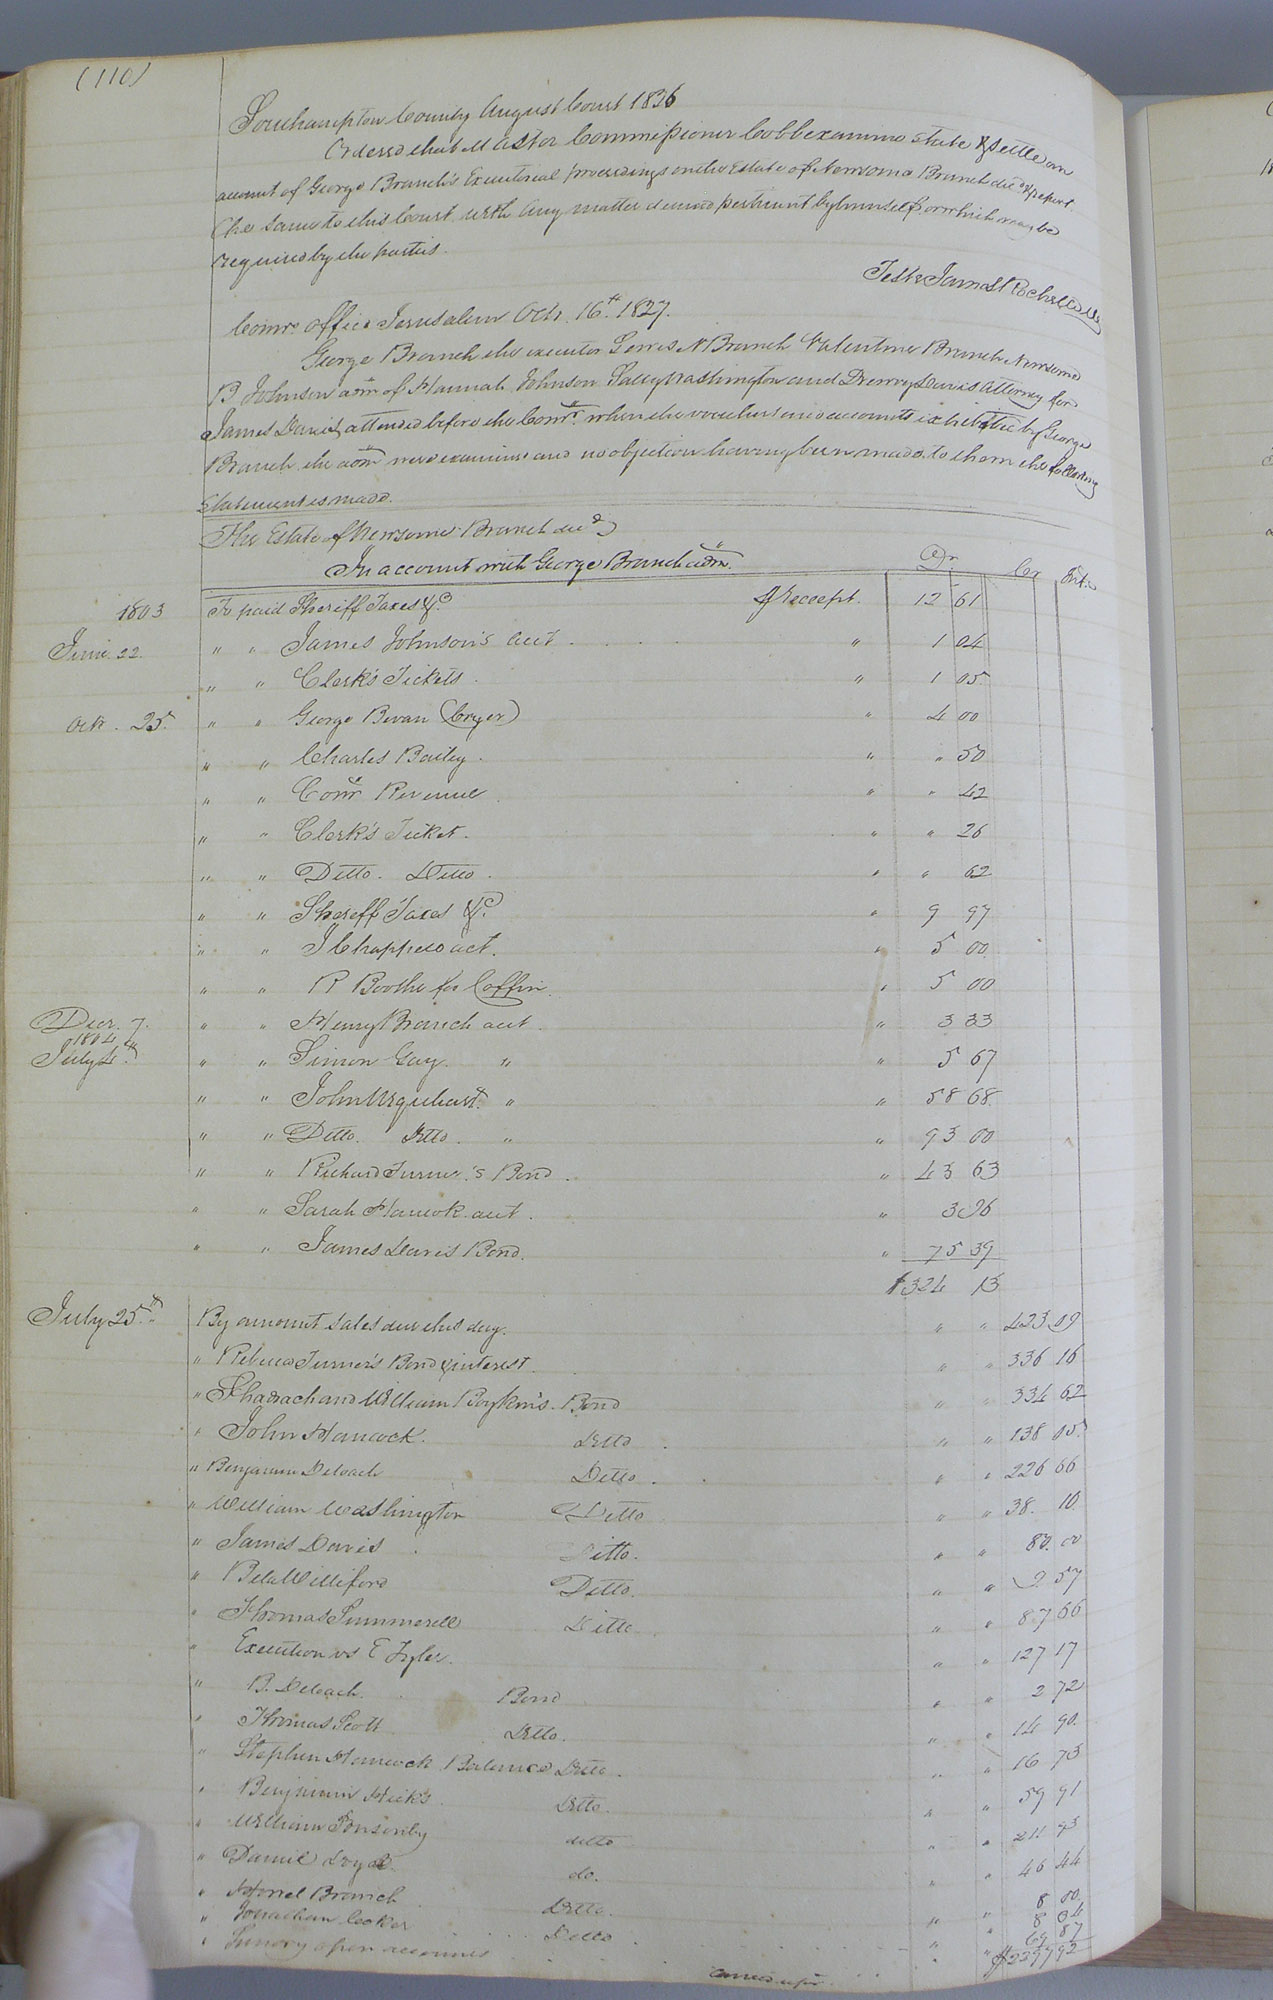 (110)
Southampton County August Court 1826
Ordered that Master Commissioner Cobb examine state & settle an
account of George Branch's Executorial proceedings on the Estate of Newsome Branch decd. & report
the same to this Court with any matter deemed pertinent by himself or which may be
required by the parties.
Teste James Rochelle
Comrs. office Jerusalem Octr. 16th. 1827.
George Branch the executor Lewis N Branch Valentine Branch Newsome
B Johnson adm of Hannah Johnson Sally Washington and Drewry Davis Attorney for
James Davis, attended before the Comr. when the vouchers and accounts exhibited by George
Branch the adm were examined and no objection having been made to them the following
statement is made.
The Estate of Newsome Branch decd.
In account with George Branch adm. Dr. Cr Int.
1803 To paid Sheriff Taxes &c pr Receipt. 12 61
June 22. " " James Johnson's acct " 1 04
" " Clerk's Tickets " 1 05
Octr. 25. " " George Bevan (Cryer) " 4 00
" " Charles Bailey " " 50
" " Comr Revenue " " 42
" " Clerk's Ticket. " " 26
" " Ditto. Ditto. " " 62
" " Sheriff Taxes &c. " 9 97
" " J Chappell's act. " 5 00
" " R Boothe for Coffin " 5 00
Decr. 7. " " Henry Branch acct. " 3 33
1804
July 4th " " Simon Gay " " 5 67
" " John Urquhart " " 58 68
" " Ditto. Ditto. " " 93 00
" " Richard Turner's Bond " 43 63
" " Sarah Hancok acct. " 3 96
" " James Davis Bond. " 75 39
$324 13
July 25th. By amount sales due this day. " " 423 09
" Rebecca Turner's Bond & interest. " " 336 16
" Shadrach and William Boykin's Bond " " 334 62
" John Hancock. Ditto " " 138 05
" Benjamin Deloach Ditto. " " 226 66
" William Washington Ditto " " 38. 10
" James Davis Ditto. " " 80. 00
" Bela Williford Ditto. " " 9 57
" Thomas Summerell Ditto " " 87 66
" Execution vs E Tyler. " " 127 17
" B. Deloach. Bond " " 2 72
" Thomas Scott Ditto. " " 14 90.
" Stephen Hancock Balance Ditto. " " 16 75
" Benjamin Hicks Ditto. " " 59 91
" William Ponsonby ditto " " 211 93
" Daniel do. " " 46 44
" Branch Ditto. " " 8 00.
" Jonathan Cocker Ditto. " " 8 04
" Sundry open accounts " " 69 87
carried up $2397 92